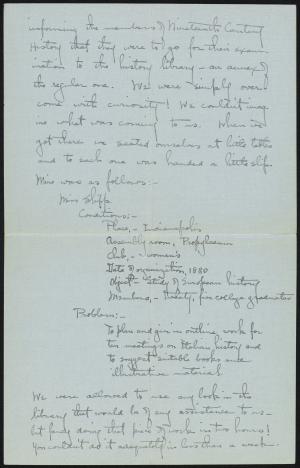 informing the members of Nineteenth Century
History that they were to go for their exam-
ination to the history library - an annex of
the regular one. We were simply over-
come with curiosity! We couldn't imag-
ine what was coming to us. When we
got there we seated ourselves at little tables
and to each one was handed a little slip.
Mine was as follows:-
Miss Shipp
Conditions:-
Place, - Indianapolis
Assembly room, Propylaeum
Club, - women's
Date of organization, 1880
Object - Study of European history
Members, - Twenty, five college graduates
Problem:-
To plan and give in outline, work for
ten meetings on Italian history and
to suggest suitable books and
illustrative material.
We were allowed to use any book in the
library that would be of any assistance to us -
but fancy doing that piece of work in two hours!
You couldn't do it adequately in less than a week.